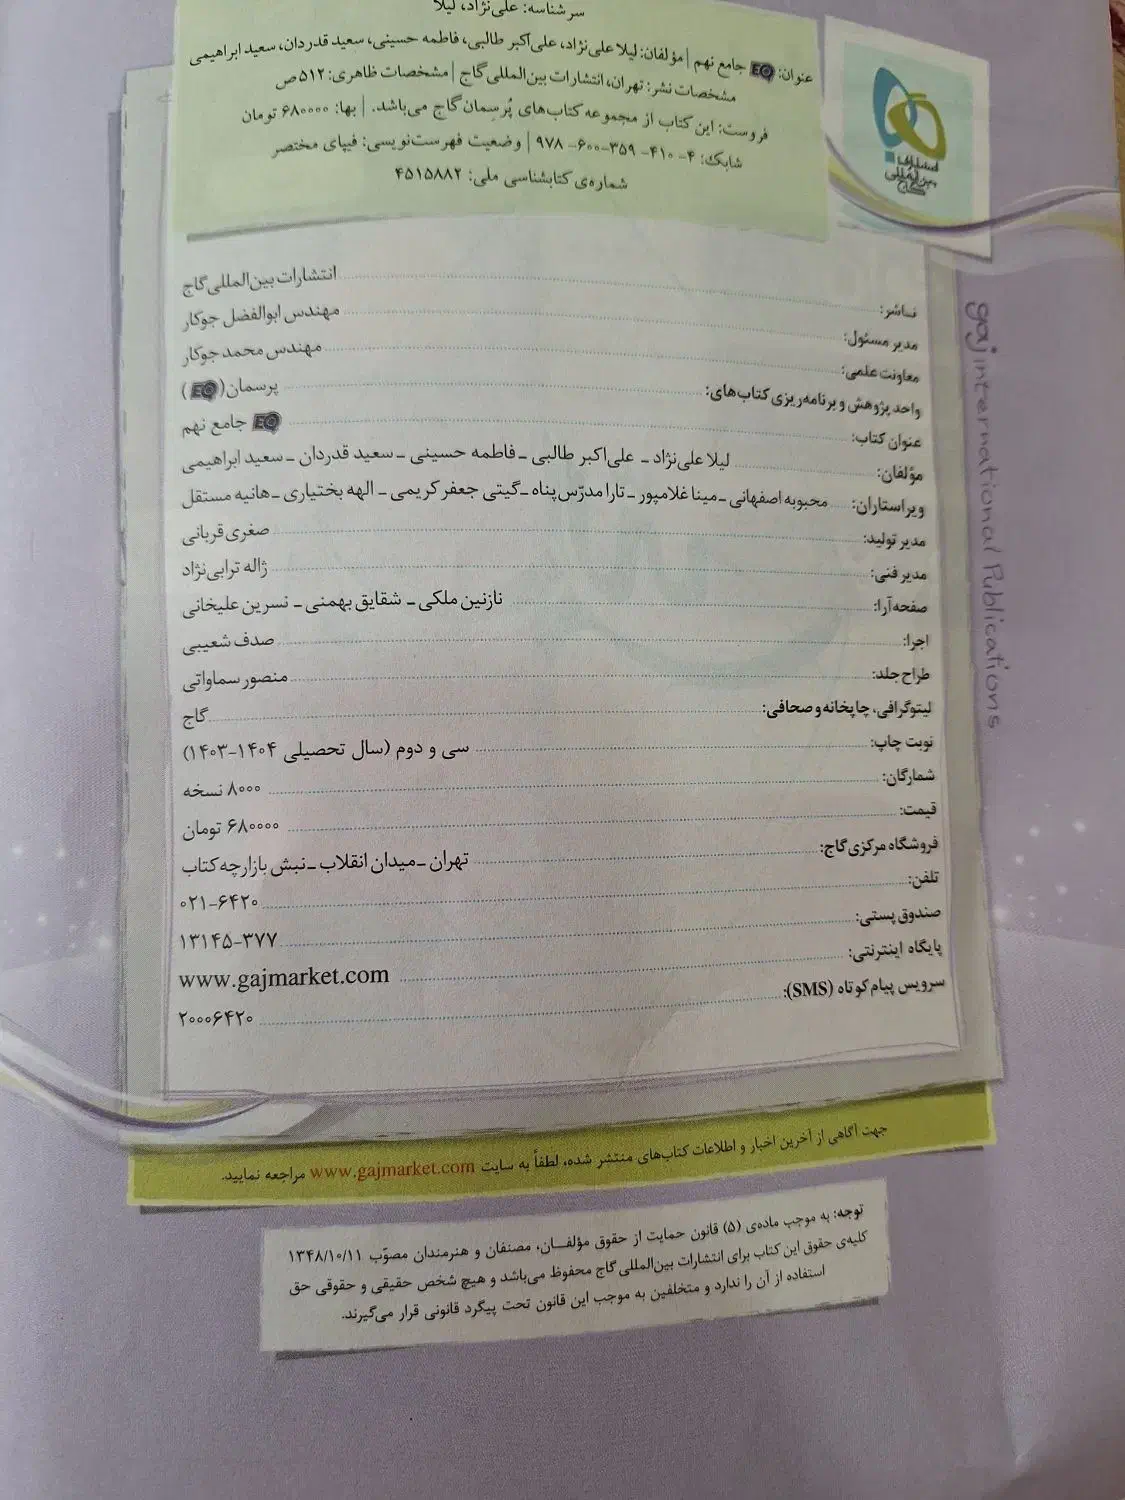 سرشناسه: علی‌نژاد، لیلا
عنوان: EQ جامع نهم | مؤلفان: لیلا علی‌نژاد، علی‌اکبر طالبی، فاطمه حسینی، سعید قدردان، سعید ابراهیمی
مشخصات نشر: تهران، انتشارات بین‌المللی گاج | مشخصات ظاهری: ۵۱۲ ص
فروست: این کتاب از مجموعه کتاب‌های پُرسِمان گاج می‌باشد. | بها: ۶۸۰۰۰۰ تومان
شابک: ۴-۴۱۰-۳۵۹-۶۰۰-۹۷۸ | وضعیت فهرست‌نویسی: فیپای مختصر
شماره‌ی کتابشناسی ملی: ۴۵۱۵۸۸۲
انتشارات بین‌المللی گاج
ناشر: انتشارات بین‌المللی گاج
مدیر مسئول: مهندس ابوالفضل جوکار
معاونت علمی: مهندس محمد جوکار
واحد پژوهش و برنامه‌ریزی کتاب‌های: پرسمان (EQ)
عنوان کتاب: EQ جامع نهم
مؤلفان: لیلا علی‌نژاد - علی‌اکبر طالبی - فاطمه حسینی - سعید قدردان - سعید ابراهیمی
ویراستاران: محبوبه اصفهانی - مینا غلامپور - تارا مدرّس‌پناه - گیتی جعفر کریمی - الهه بختیاری - هانیه مستقل
مدیر تولید: صغری قربانی
مدیر فنی: ژاله ترابی‌نژاد
صفحه‌آرا: نازنین ملکی - شقایق بهمنی - نسرین علیخانی
اجرا: صدف شعیبی
طراح جلد: منصور سماواتی
لیتوگرافی، چاپخانه و صحافی: گاج
نوبت چاپ: سی و دوم (سال تحصیلی ۱۴۰۴-۱۴۰۳)
شمارگان: ۸۰۰۰ نسخه
قیمت: ۶۸۰۰۰۰ تومان
فروشگاه مرکزی گاج: تهران - میدان انقلاب - نبش بازارچه کتاب
تلفن: ۰۲۱-۶۴۲۰
صندوق پستی: ۱۳۱۴۵-۳۷۷
پایگاه اینترنتی: www.gajmarket.com
سرویس پیام کوتاه (SMS): ۲۰۰۰۶۴۲۰
gaj international Publications
جهت آگاهی از آخرین اخبار و اطلاعات کتاب‌های منتشر شده، لطفاً به سایت www.gajmarket.com مراجعه نمایید.
توجه: به موجب ماده‌ی (۵) قانون حمایت از حقوق مؤلفـــان، مصنفان و هنرمندان مصوّب ۱۳۴۸/۱۰/۱۱
کلیه‌ی حقوق این کتاب برای انتشارات بین‌المللی گاج محفوظ می‌باشد و هیچ شخص حقیقی و حقوقی حق
استفاده از آن را ندارد و متخلفین به موجب این قانون تحت پیگرد قانونی قرار می‌گیرند.